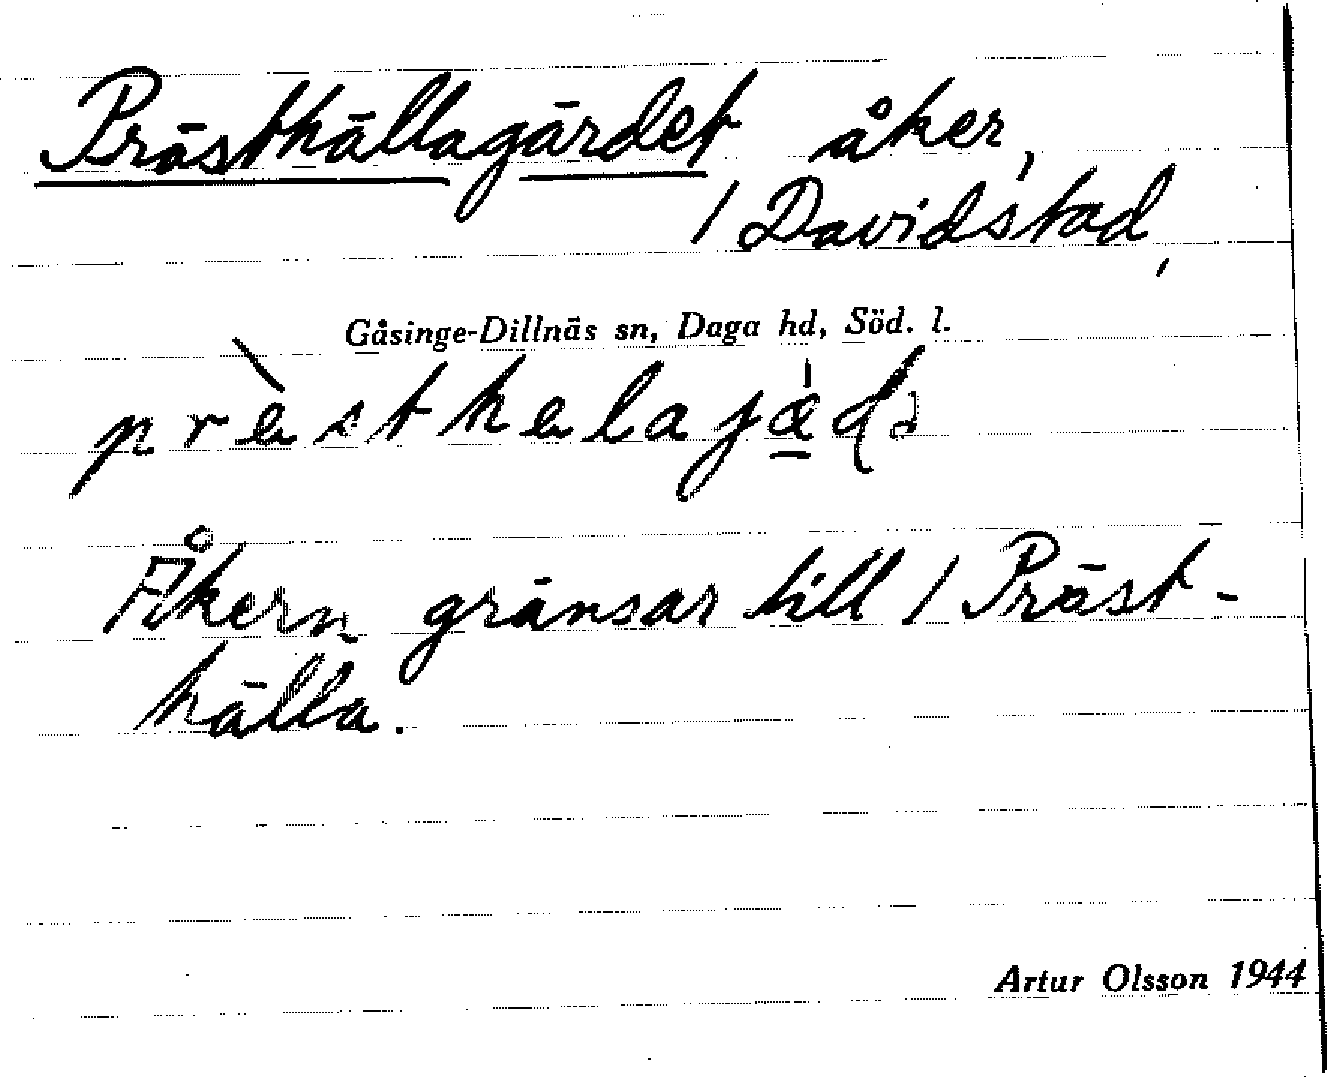 Prästhällagärdet åker,
/ Davidstad,
Gåsinge-Dillnäs sn, Daga hd, Söd. l.
prèsthelajæ̲̍ḍə
Åkern gränsar till / Präst-
hälla.
Artur Olsson 1944